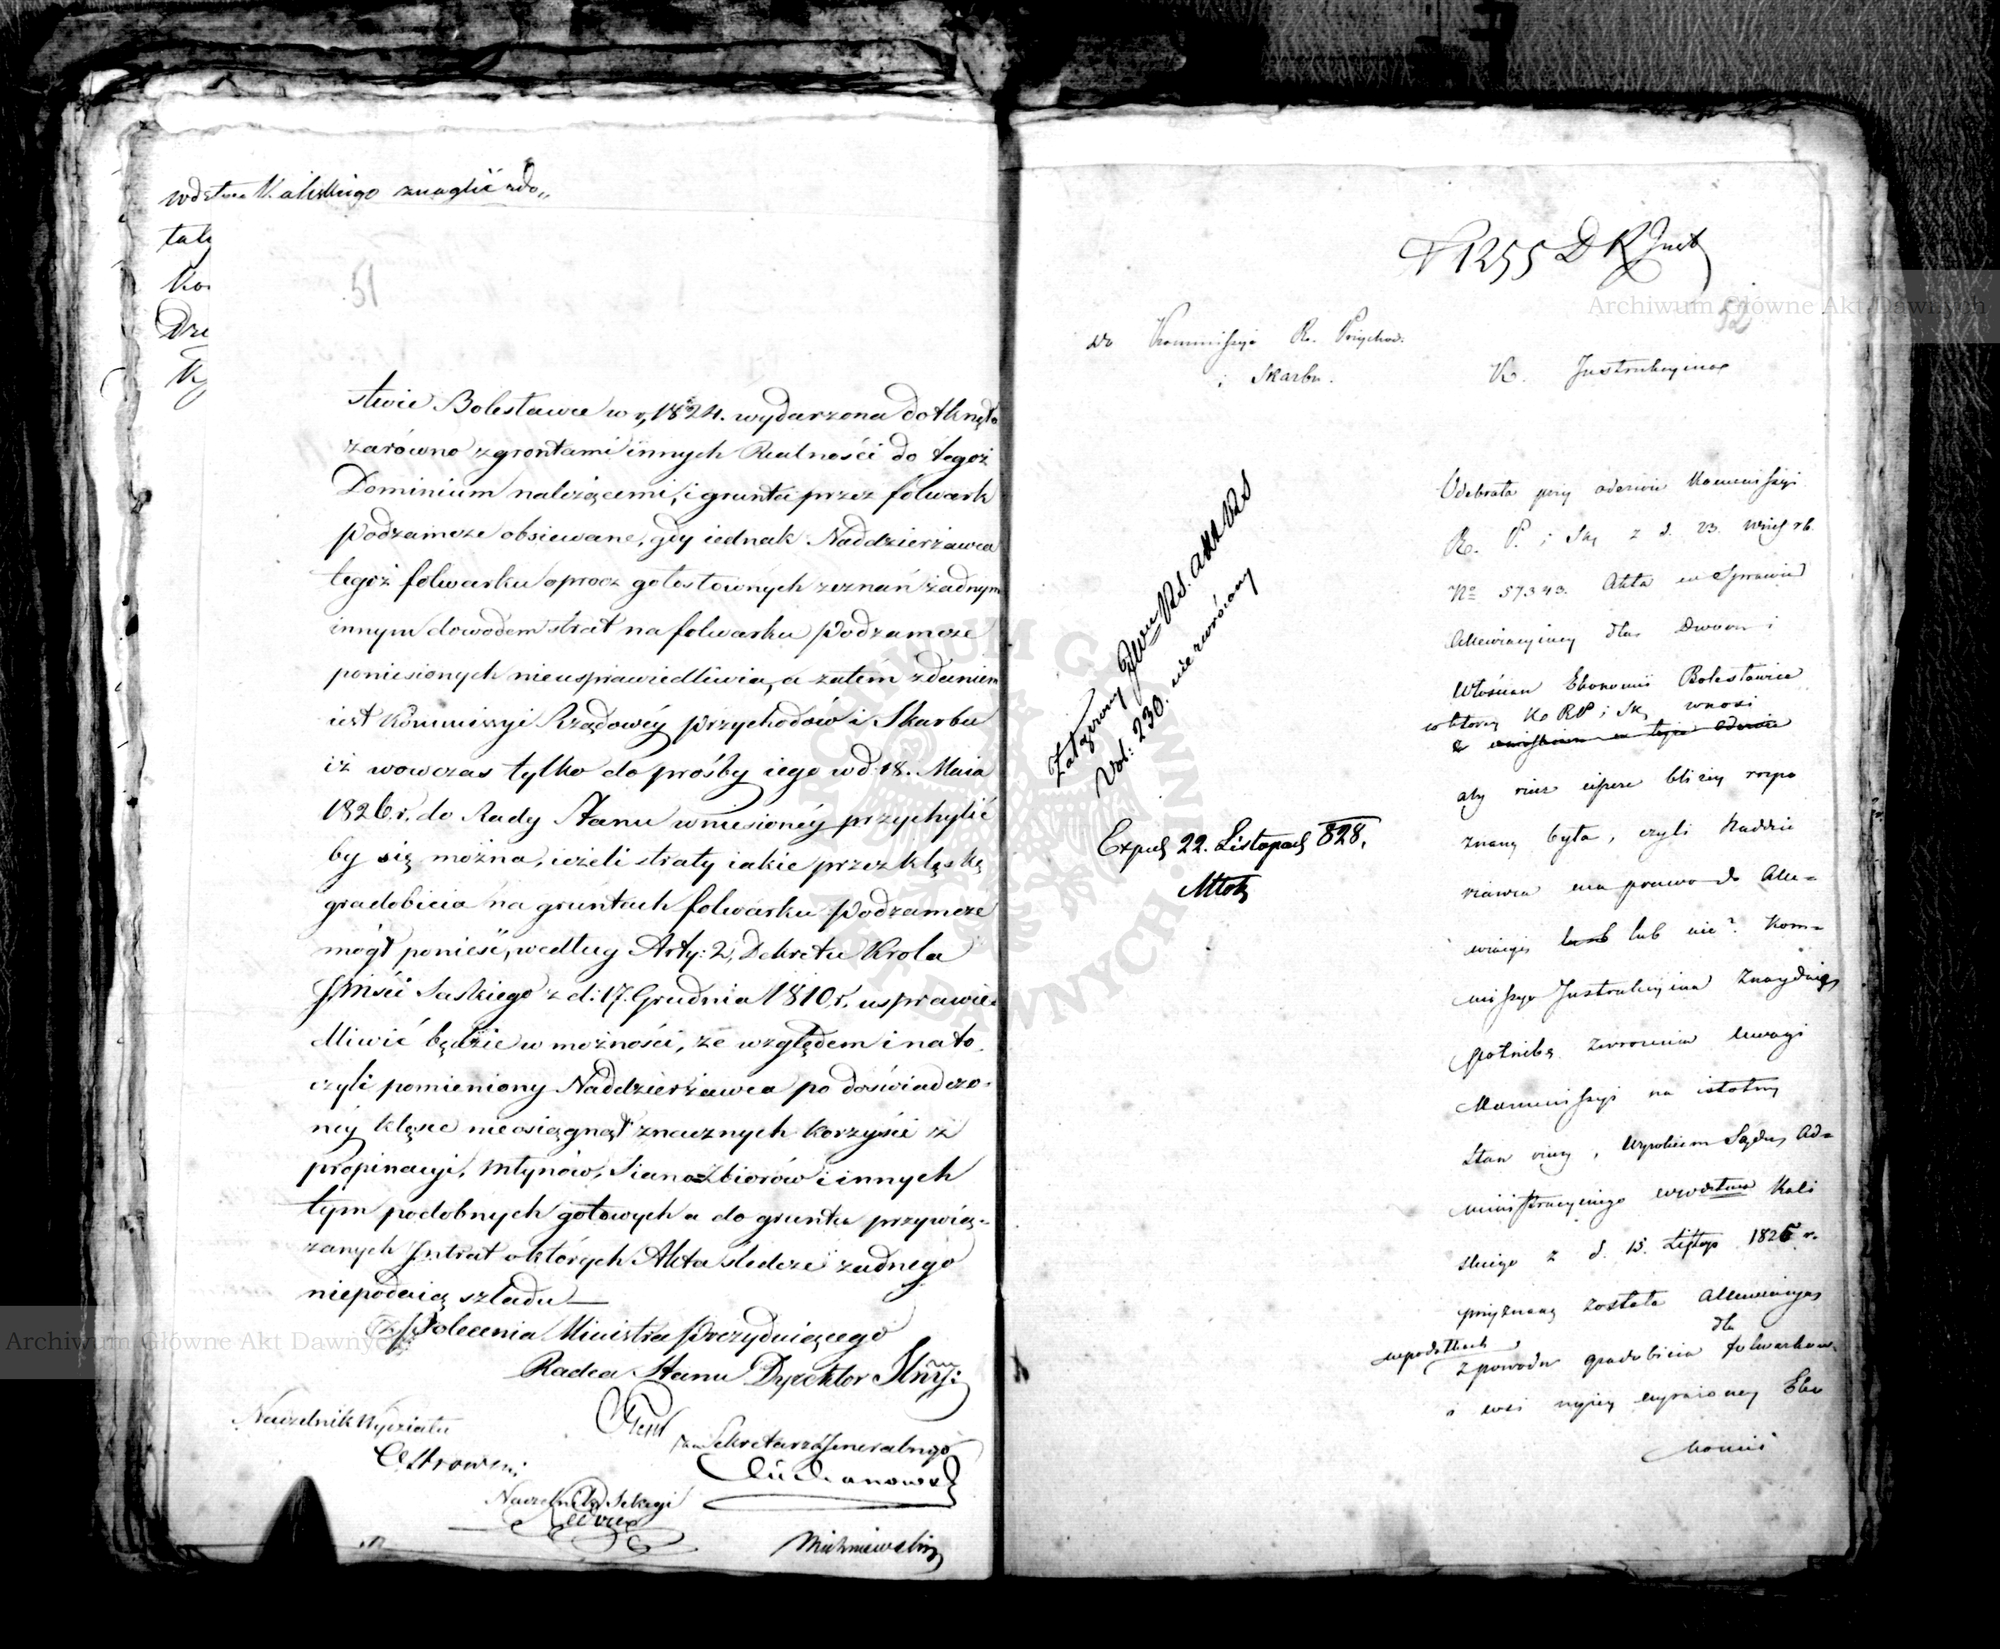 wdztwa Kaliskiego znaglić zdo„
tak
Ko
Drę
51
stwie Bolesławie w r. 1824. wydarzona dotknęła
zarówno z grontami innych Realności do tegoż
Dominium należącemi, i grunta przez folwark
Podzamcze obsiewane, gdy iednak Naddzierżawca
tegoż folwarku oprocz gołosłownych zeznań żadnym
innym dowodem strat na folwarku Podzamcze
poniesionych nieusprawiedliwia, a zatem zdaniem
iest Kommissyi Rządowéy Przychodów i Skarbu
iż wowczas tylko do prośby iego w d: 18. Maia
1826. r. do Rady Stanu wniesionéy przychylić
by się można, ieżeli straty iakie przez klęskę
gradobicia na gruntach folwarku Podzamcze
mógł ponieść, według Arty: 2, Dekretu Krola
JMści Saskiego z d: 17. Grudnia 1810. r. usprawie-
dliwić będzie w możności, ze względem i na to
czyli pomieniony Naddzierżawca po doświadczo-
néy klęsce nieosiągnął znacznych korzyści z
propinacyi, Młynów, Siana=zbiorów i innych
tym podobnych gotowych a do gruntu przywią-
zanych Intrat o których Akta śledcze żadnego
niepodaią szladu
Z polecenia Ministra Prezyduiącego
Radca Stanu Dyrektor Jlny:
Naczelnik Wydziału
Ostrowski
za Sekretarza Jeneralnego
Naczelnik Sekcyi
N 1255 D K Inst
52
do Kommissyi R. Przychod.
i Skarbu.
K. Instrukcyina
Odebrała przy odezwie Kommissyi
R. P. i Sk. z d. 23. Wrześ rb.
No 57343. Akta w Sprawie
Allewiacyiney dla Dworu i
Włościan Ekonomii Bolesławiec
w którey K R P i Sk. wnosi
aby rzecz ieszcze bliżey rozpo
znaną była, czyli Naddzie
rżawca ma prawo do Alle=
wiacyi lub nie? Kom=
missya Instrukcyina znayduie
potrzebę zwrócenia uwagi
Kommissyi na istotny
Stan rzeczy, Wyrokiem Sądu Ad=
ministracyinego wwdztwa Kali
skiego z d. 15. Listop 1825 r.
przyznaną została Allewiacya
w podatkach
z powodu gradobicia dla folwarków
i wsi wyżey wyrażoney Eko
nomii
Załączony
Vol: 230. nie zwrócony
Exped 22. Listopad 828.
Archiwum Główne Akt Dawnych
Archiwum Główne Akt Dawnych
ARCHIWUM GŁÓWNE AKT DAWNYCH